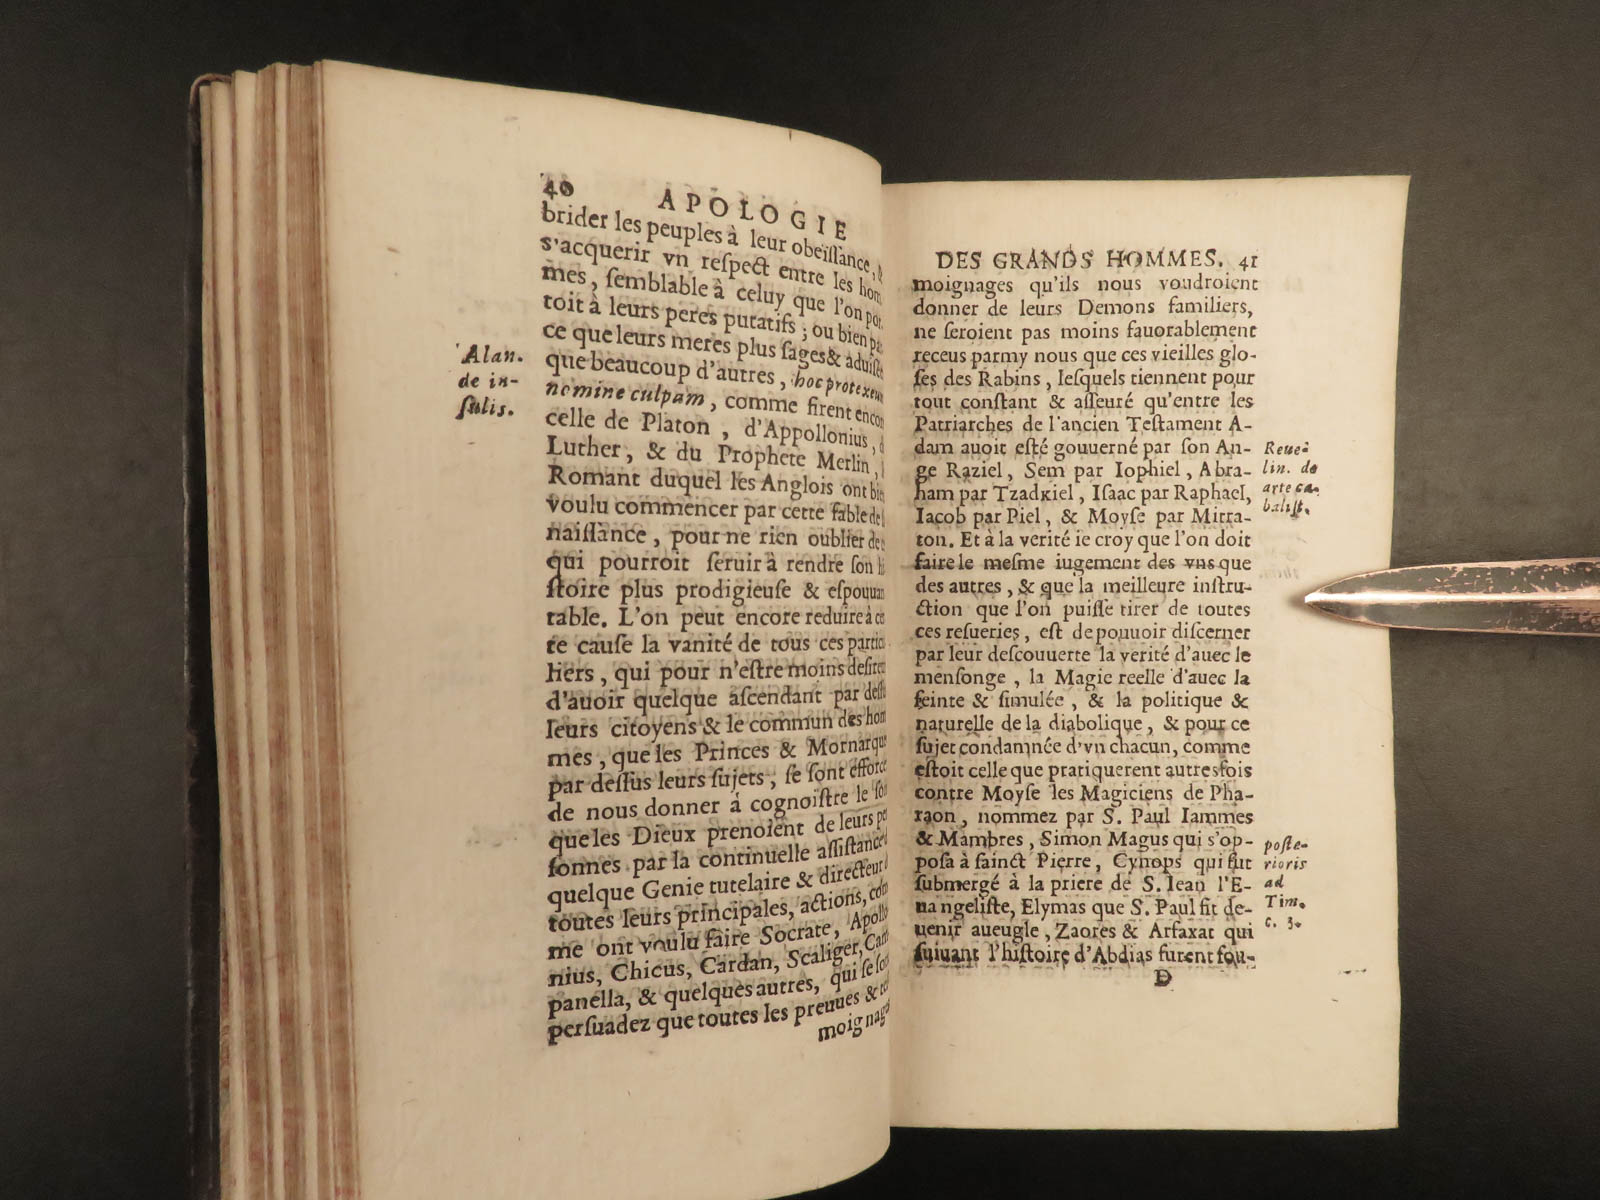 40 APOLOGIE
brider les peuples à leur obeïſſance,
s'acquerir vn reſpect entre les hom
mes, ſemblable à celuy que l'on por
toit à leurs peres putatifs; ou bien
ce que leurs meres plus ſages & aduiſée
que beaucoup d'autres, hoc protexeru
nomine culpam, comme firent encor
celle de Platon, d'Appollonius, d
Luther, & du Prophete Merlin, l
Romant duquel les Anglois ont bie
voulu commencer par cette fable de
naiſſance, pour ne rien oublier de
qui pourroit ſeruir à rendre ſon
ſtoire plus prodigieuſe & eſpouuan
table. L'on peut encore reduire à
te cauſe la vanité de tous ces partic
liers, qui pour n'eſtre moins deſireu
d'auoir quelque aſcendant par deſſu
leurs citoyens & le commun des hom
mes, que les Princes & Mornarque
par deſſus leurs ſujets, ſe ſont efforce
de nous donner à cognoiſtre le ſoi
que les Dieux prenoient de leurs pe
ſonnes par la continuelle aſſiſtance
quelque Genie tutelaire & directeur
toutes leurs principales, actions, com
me ont voulu faire Socrate, Apollo
nius, Chicus, Cardan, Scaliger, Cam
panella, & quelques autres, qui ſe ſo
perſuadez que toutes les preuues & te
moignage
Alan.
de in-
ſulis.
DES GRANDS HOMMES. 41
moignages qu'ils nous voudroient
donner de leurs Demons familiers,
ne ſeroient pas moins fauorablement
receus parmy nous que ces vieilles glo-
ſes des Rabins, leſquels tiennent pour
tout conſtant & aſſeuré qu'entre les
Patriarches de l'ancien Teſtament A-
dam auoit eſté gouuerné par ſon An-
ge Raziel, Sem par Iophiel, Abra-
ham par Tzadkiel, Iſaac par Raphael,
Iacob par Piel, & Moyſe par Mitra-
ton. Et à la verité ie croy que l'on doit
faire le meſme iugement des vns que
des autres, & que la meilleure inſtru-
ction que l'on puiſſe tirer de toutes
ces reſueries, eſt de pouuoir diſcerner
par leur deſcouuerte la verité d'auec le
menſonge, la Magie reelle d'auec la
feinte & ſimulée, & la politique &
naturelle de la diabolique, & pour ce
ſujet condamnée d'vn chacun, comme
eſtoit celle que pratiquerent autresfois
contre Moyſe les Magiciens de Pha-
raon, nommez par S. Paul Iammes
& Mambres, Simon Magus qui s'op-
poſa à ſainct Pierre, Cynops qui fut
ſubmergé à la priere de S. Iean l'E-
uangeliſte, Elymas que S. Paul fit de-
uenir aueugle, Zaores & Arfaxat qui
ſuiuant l'hiſtoire d'Abdias furent fou-
D
Reue-
lin. de
arte ca-
baliſt.
poſte-
rioris
ad
Tim.
c. 3.